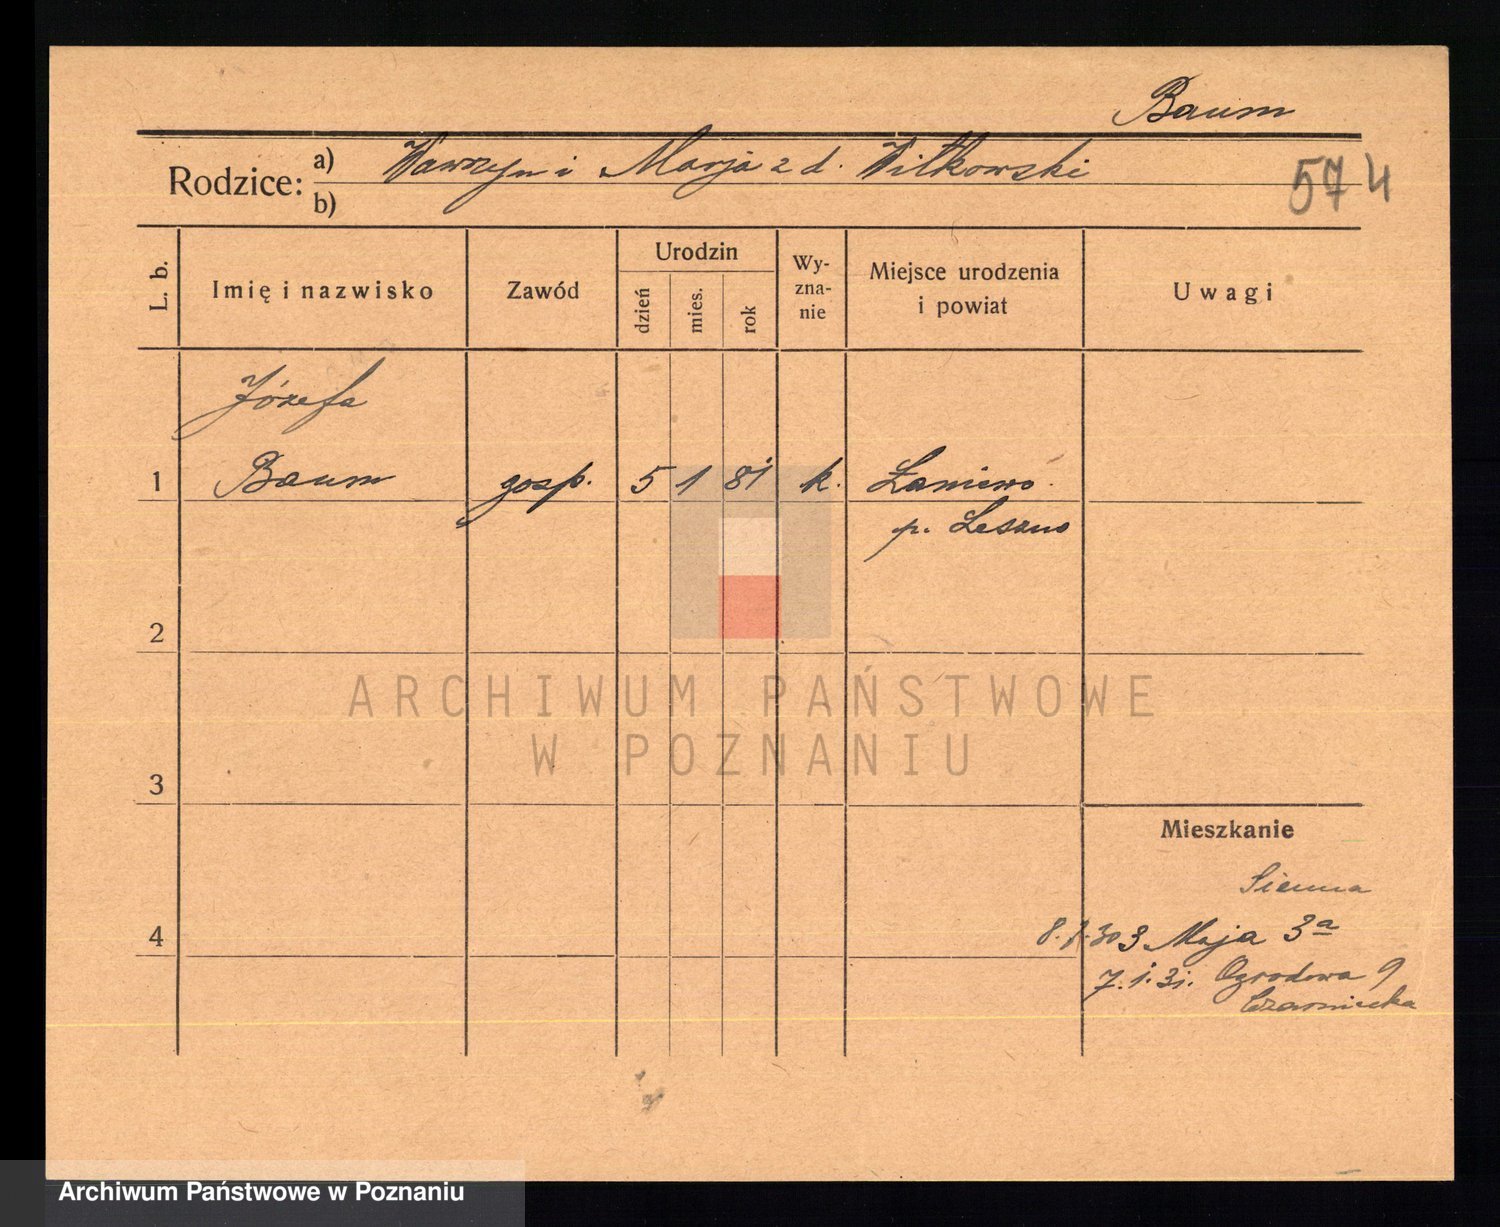 Baum
Rodzice: a) Wawrzyn i Marja z d. Witkowski
b)
574
L. b.
Imię i nazwisko
Zawód
Urodzin
dzień
mies.
rok
Wy-
zna-
nie
Miejsce urodzenia
i powiat
Uwagi
Józefa
1 Baum gosp. 5 1 81 k. Łaniewo
p. Leszno
2
ARCHIWUM PAŃSTWOWE
W POZNANIU
3
Mieszkanie
Sienna
4
8. 30 3 Maja 3a
7.1.31. Ogrodowa 9
Czarniecka
Archiwum Państwowe w Poznaniu